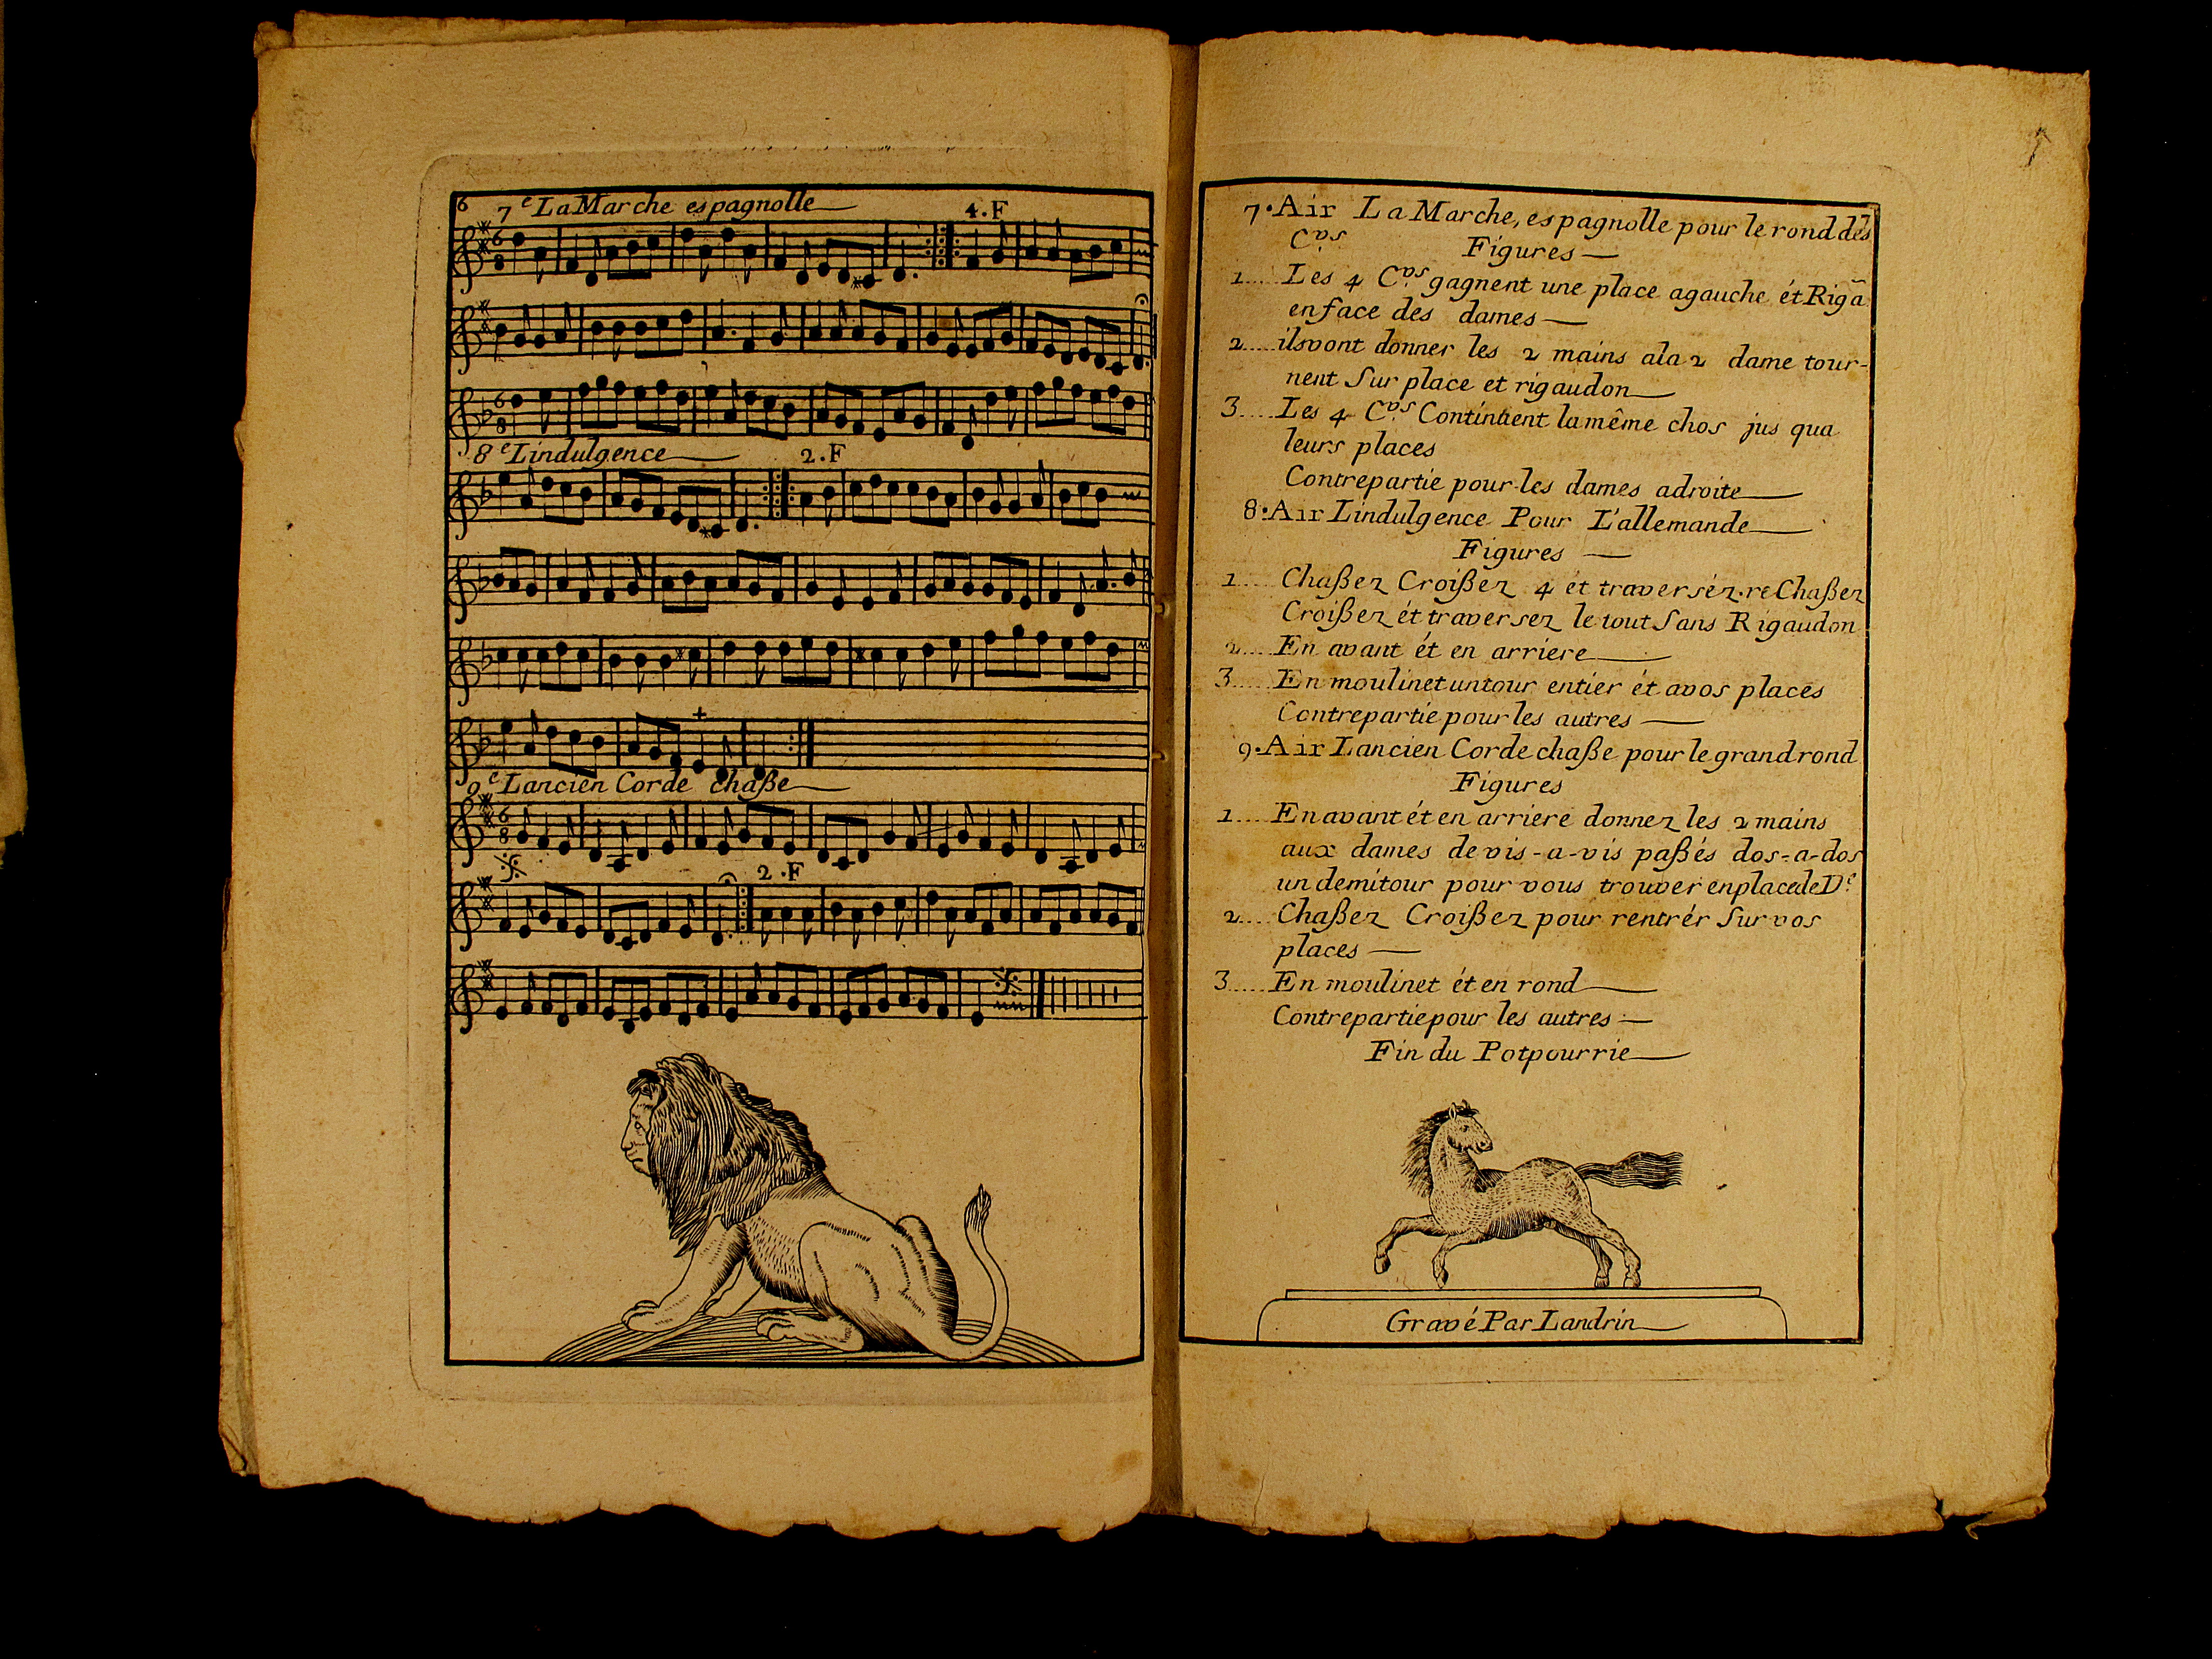 6
7e La Marche espagnolle
4.F
6
8
6
8
8e Lindulgence
2.F
9e Lancien Corde chaße
6
8
2.F
7
7. Air La Marche, espagnolle pour le rond dês
Cvs.
Figures
1.... Les 4 Cvs. gagnent une place agauche ét Riga
enface des dames
2.... ilsvont donner les 2 mains ala 2 dame tour-
nent Sur place et rigaudon
3.... Les 4 Cvs. Continuent lamême chos jus qua
leurs places
Contrepartie pour les dames adroite
8. Air Lindulgence Pour L'allemande
Figures
1.... Chaßez Croißez 4 et traverséz. re Chaßez
Croißez ét traversez le tout Sans Rigaudon
2.... En avant ét en arriere
3.... En moulinet untour entier ét avos places
Contrepartie pour les autres
9. Air Lancien Corde chaße pour le grand rond
Figures
1.... Enavant ét en arriere donnez les 2 mains
aux dames de vis-a-vis paßés dos-a-dos
un demitour pour vous trouver enplacedeDe.
2.... Chaßez Croißez pour rentrér Sur vos
places
3.... En moulinet ét en rond
Contrepartiepour les autres
Fin du Potpourrie
Gravé Par Landrin